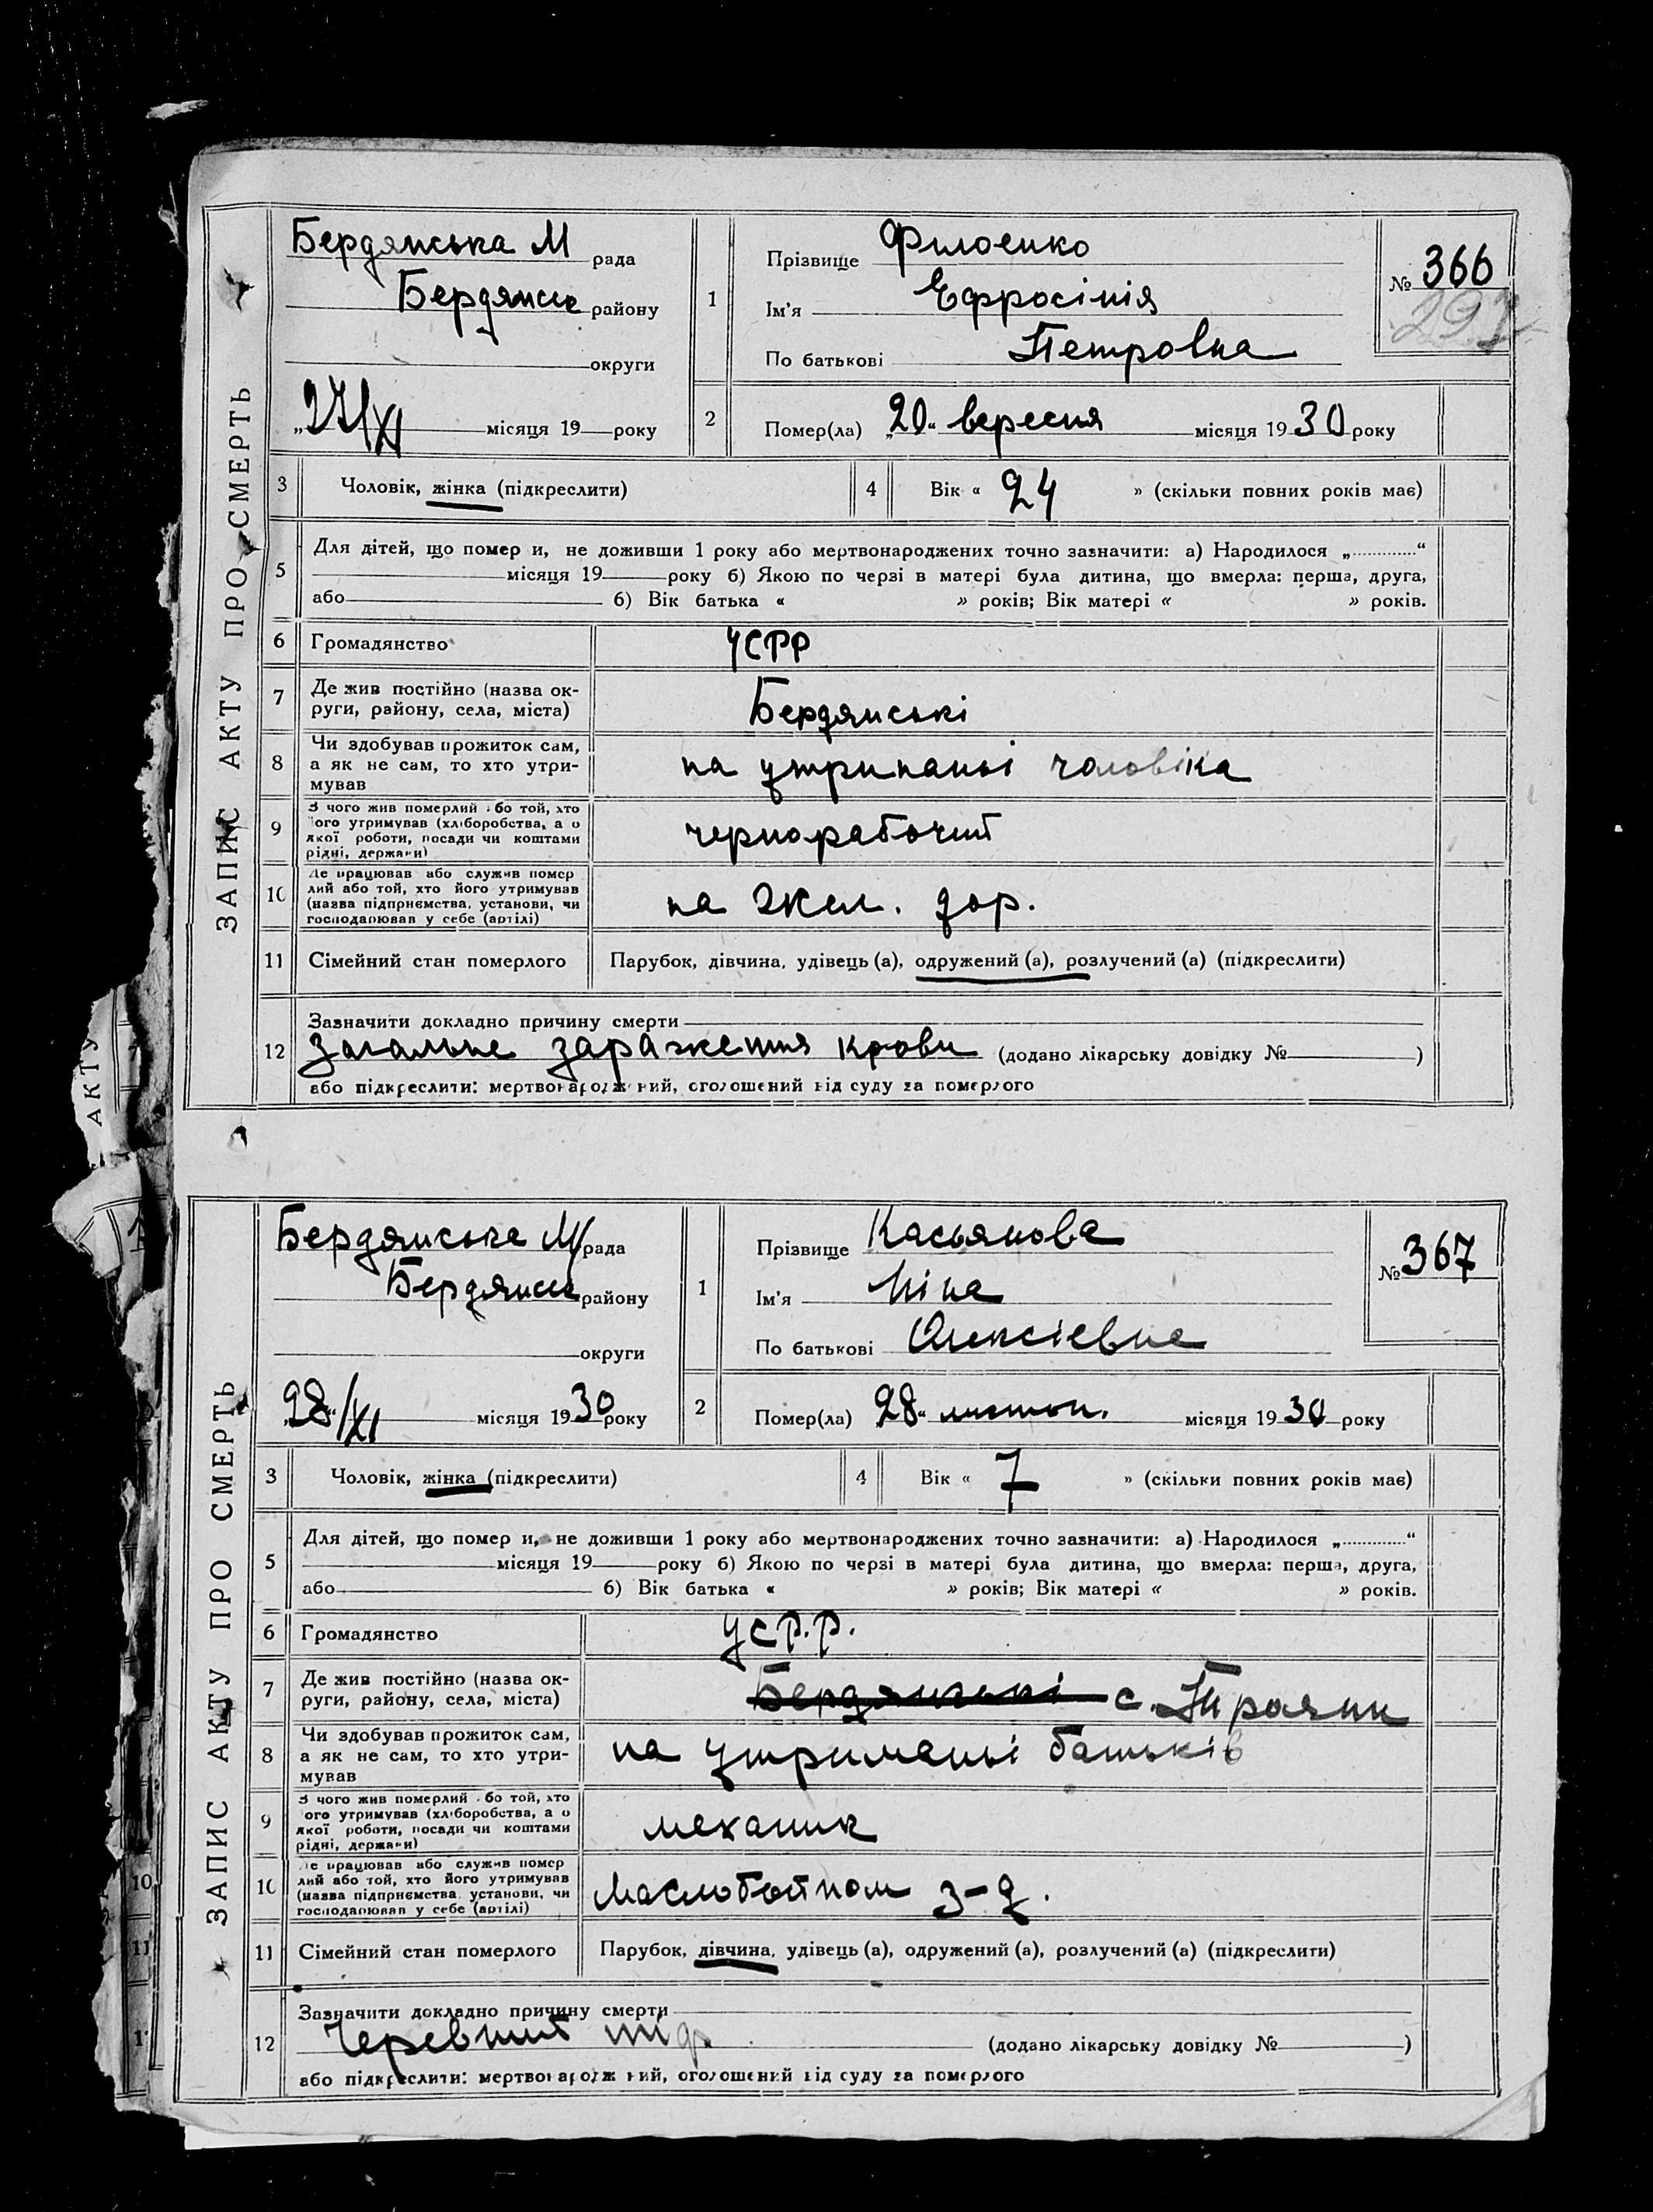 ЗАПИС АКТУ ПРО СМЕРТЬ
Бердянська М рада
Бердянськ району
округи
„27/XI місяця 19 року
1
Прізвище Филоенко
Ім'я Ефросінія
По батькові Петровна
№ 366
297
2
Помер(ла) „20“ вересня місяця 1930 року
3 Чоловік, жінка (підкреслити)
4 Вік « 24 » (скільки повних років має)
5
Для дітей, що помер и, не доживши 1 року або мертвонароджених точно зазначити: а) Народилося „............“
місяця 19 року б) Якою по черзі в матері була дитина, що вмерла: перша, друга,
або б) Вік батька « » років; Вік матері « » років.
6 Громадянство УСРР
7 Де жив постійно (назва ок-
руги, району, села, міста)
Бердянські
8 Чи здобував прожиток сам,
а як не сам, то хто утри-
мував
на утриманьі чоловіка
9 З чого жив померлий бо той, хто
ого утримував (хліборобства, а о
якої роботи, посади чи коштами
рідні, держави)
чернорабочий
10 Де працював або служив помер
лий або той, хто його утримував
(назва підприємства, установи, чи
господарював у себе (артілі)
на жел. дор.
11 Сімейний стан померлого Парубок, дівчина, удівець (а), одружений (а), розлучений (а) (підкреслити)
12 Зазначити докладно причину смерти
Загальне зараження крови (додано лікарську довідку № )
або підкреслити: мертвонароджений, оголошений від суду за померлого
АКТУ
ЗАПИС АКТУ ПРО СМЕРТЬ
Бердянська М рада
Бердянськ району
округи
„28“/XI місяця 1930 року
1
Прізвище Касьянова
Ім'я Ніна
По батькові Олексієвна
№ 367
2
Помер(ла) 28“ листоп. місяця 1930 року
3 Чоловік, жінка (підкреслити)
4 Вік « 7 » (скільки повних років має)
5
Для дітей, що помер и, не доживши 1 року або мертвонароджених точно зазначити: а) Народилося „............“
місяця 19 року б) Якою по черзі в матері була дитина, що вмерла: перша, друга,
або б) Вік батька « » років; Вік матері « » років.
6 Громадянство УСР.Р.
7 Де жив постійно (назва ок-
руги, району, села, міста)
Бердянські с. Трояни
8 Чи здобував прожиток сам,
а як не сам, то хто утри-
мував
на утриманьі батьків
9 З чого жив померлий бо той, хто
ого утримував (хліборобства, а о
якої роботи, посади чи коштами
рідні, держави)
механик
10 е працював або служив помер
лий або той, хто його утримував
(назва підприємства, установи, чи
господарював у себе (артілі)
Маслобойном з-д.
11 Сімейний стан померлого Парубок, дівчина, удівець (а), одружений (а), розлучений (а) (підкреслити)
12 Зазначити докладно причину смерти
Черевний тиф. (додано лікарську довідку № )
або підкреслити: мертвонароджений, оголошений від суду за померлого
10
11